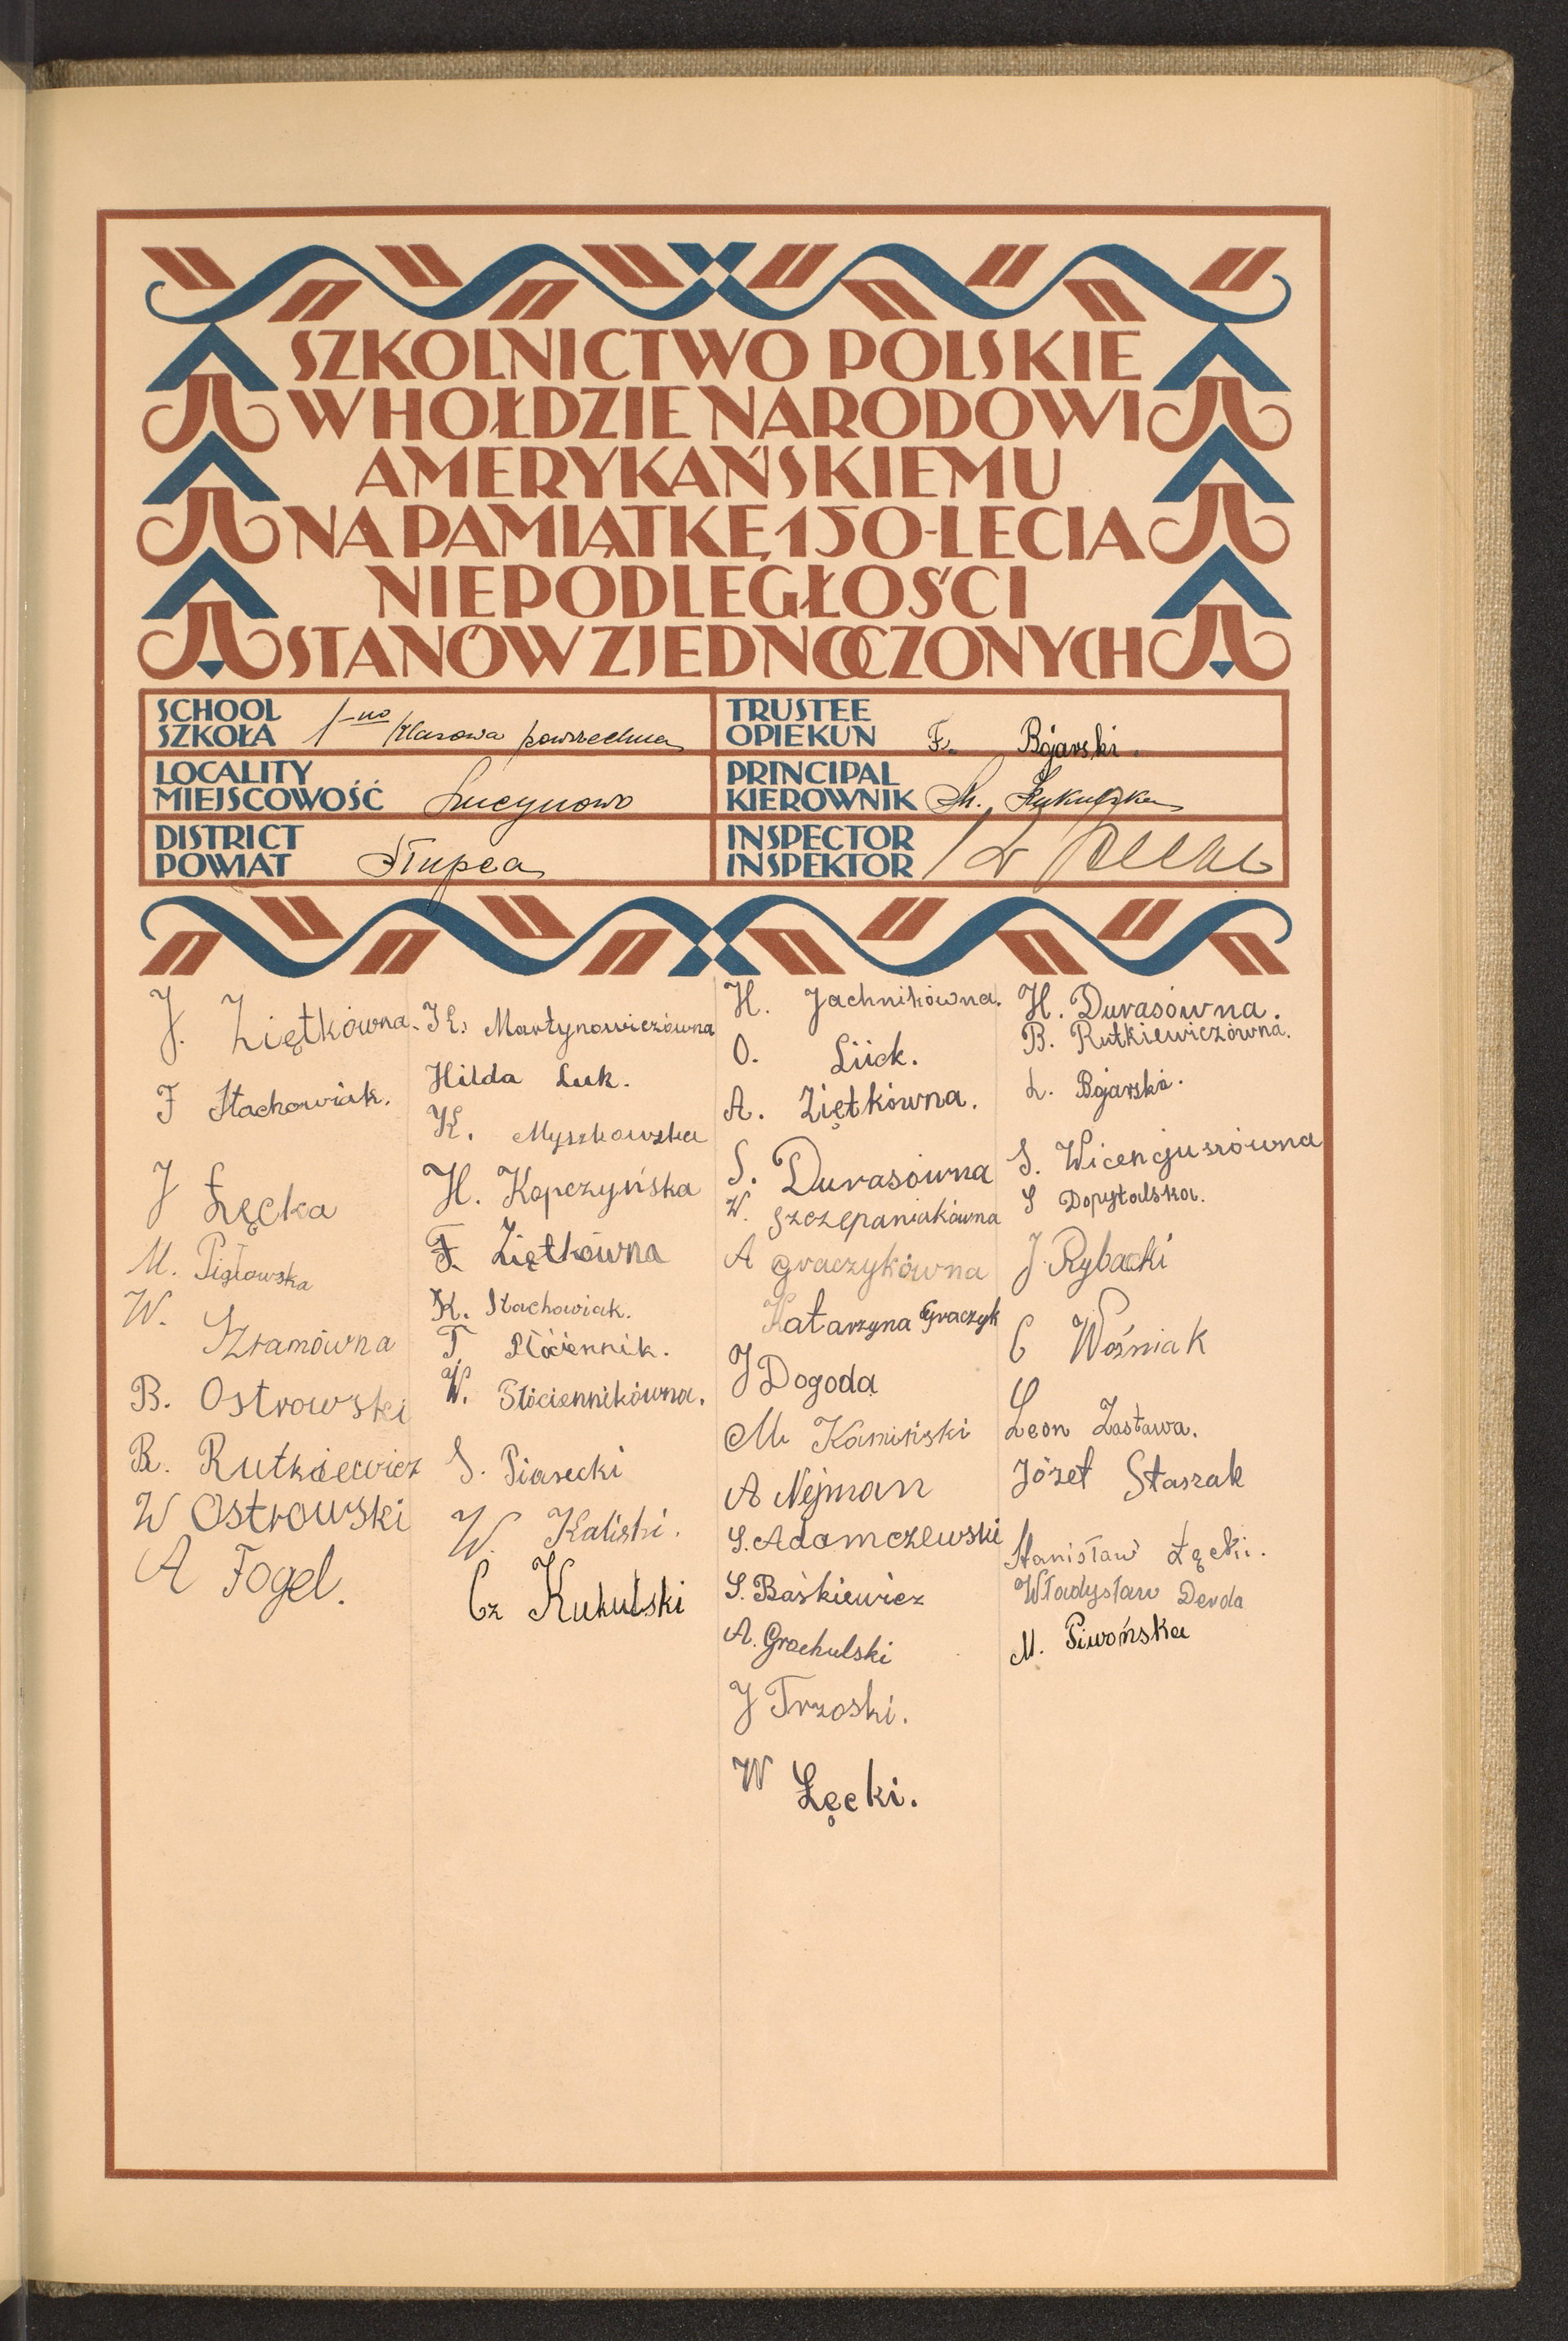 SZKOLNICTWO POLSKIE
W HOŁDZIE NARODOWI
AMERYKAŃSKIEMU
NA PAMIĄTKĘ 150-LECIA
NIEPODLEGŁOŚCI
STANÓW ZJEDNOCZONYCH
SCHOOL
SZKOŁA 1-no klasowa powszechna
LOCALITY
MIEJSCOWOŚĆ Lucynowo
DISTRICT
POWIAT Słupca
TRUSTEE
OPIEKUN F. Bojarski.
PRINCIPAL
KIEROWNIK
INSPECTOR
INSPEKTOR
J. Ziętkówna.
F Stachowiak.
J Łęcka
M. Pigłowska
W. Szramówna
B. Ostrowski
R. Rutkiewicz
W Ostrowski
A Fogel.
K. Martynowiczówna
Hilda Luk.
K. Myszkowska
H. Kopczyńska
F. Ziętkówna
K. Stachowiak.
T Płóciennik.
W. Płóciennikówna.
S. Piasecki
W. Kaliski.
Cz Kukulski
H. Jachnikówna.
O. Lück.
A. Ziętkówna.
S. Durasówna
W. Szczepaniakówna
A Graczykówna
Katarzyna Graczyk
J Dogoda
M Kamiński
A Nejman
S. Adamczewski
S. Baśkiewicz
A. Grochulski
J Trzoski.
W Łęcki.
H. Durasówna.
B. Rutkiewiczówna.
L. Bojarska.
S. Wicencjuszówna
S Dopytalska.
J. Rybacki
C Wośniak
Leon Zastawa.
Józef Staszak
Stanisław Łącki.
Władysław Derda
M. Piwońska